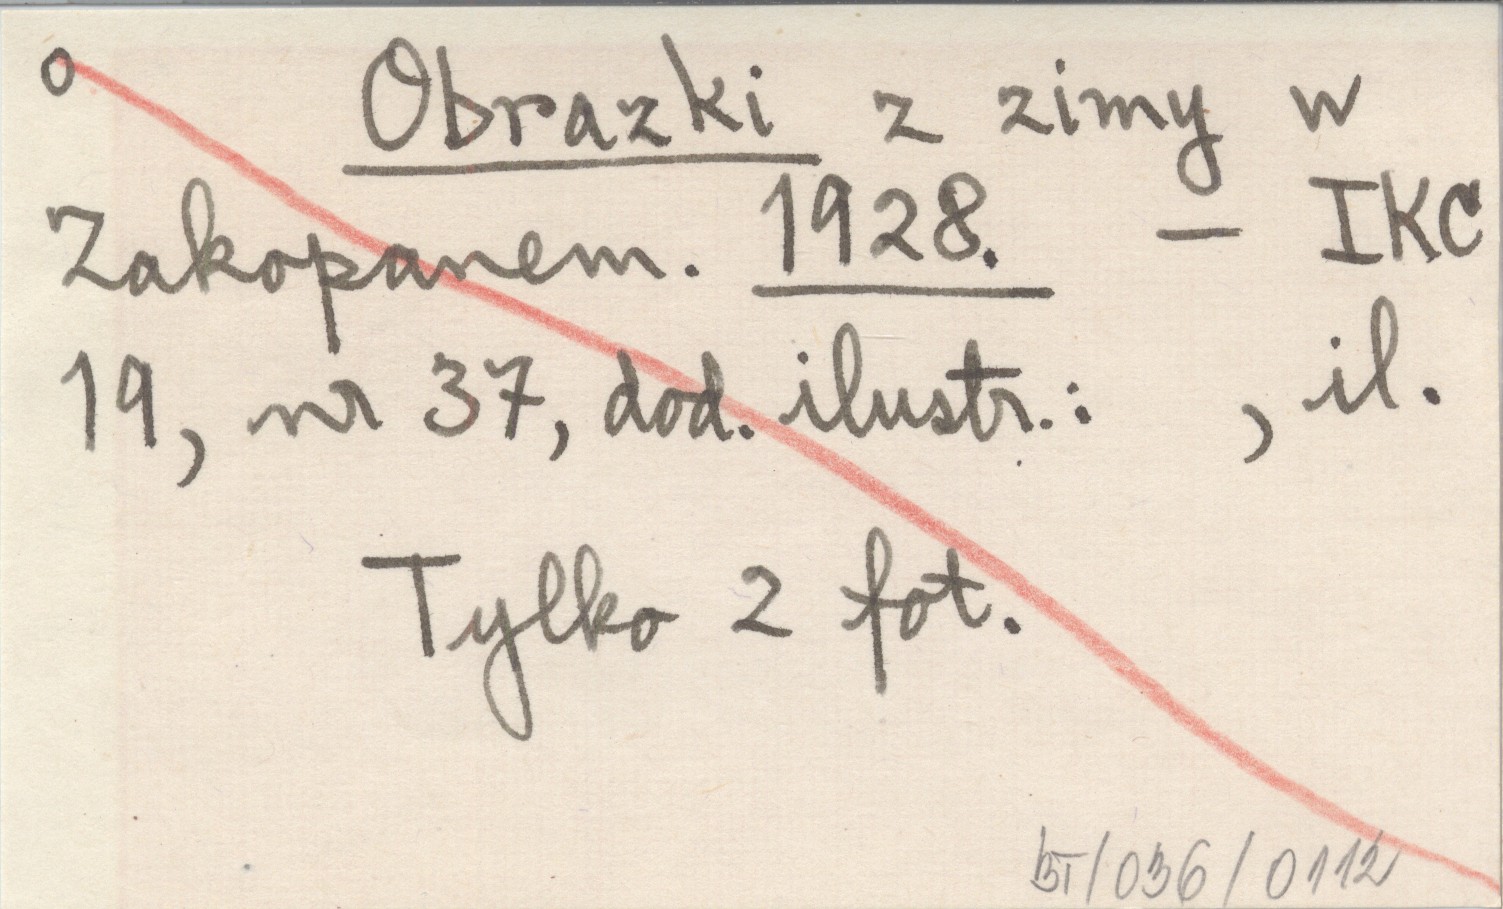 o Obrazki z zimy w
Zakopanem. 1928. – IKC
19, nr 37, dod. ilustr.: , il.
Tylko 2 fot.
/036/0112